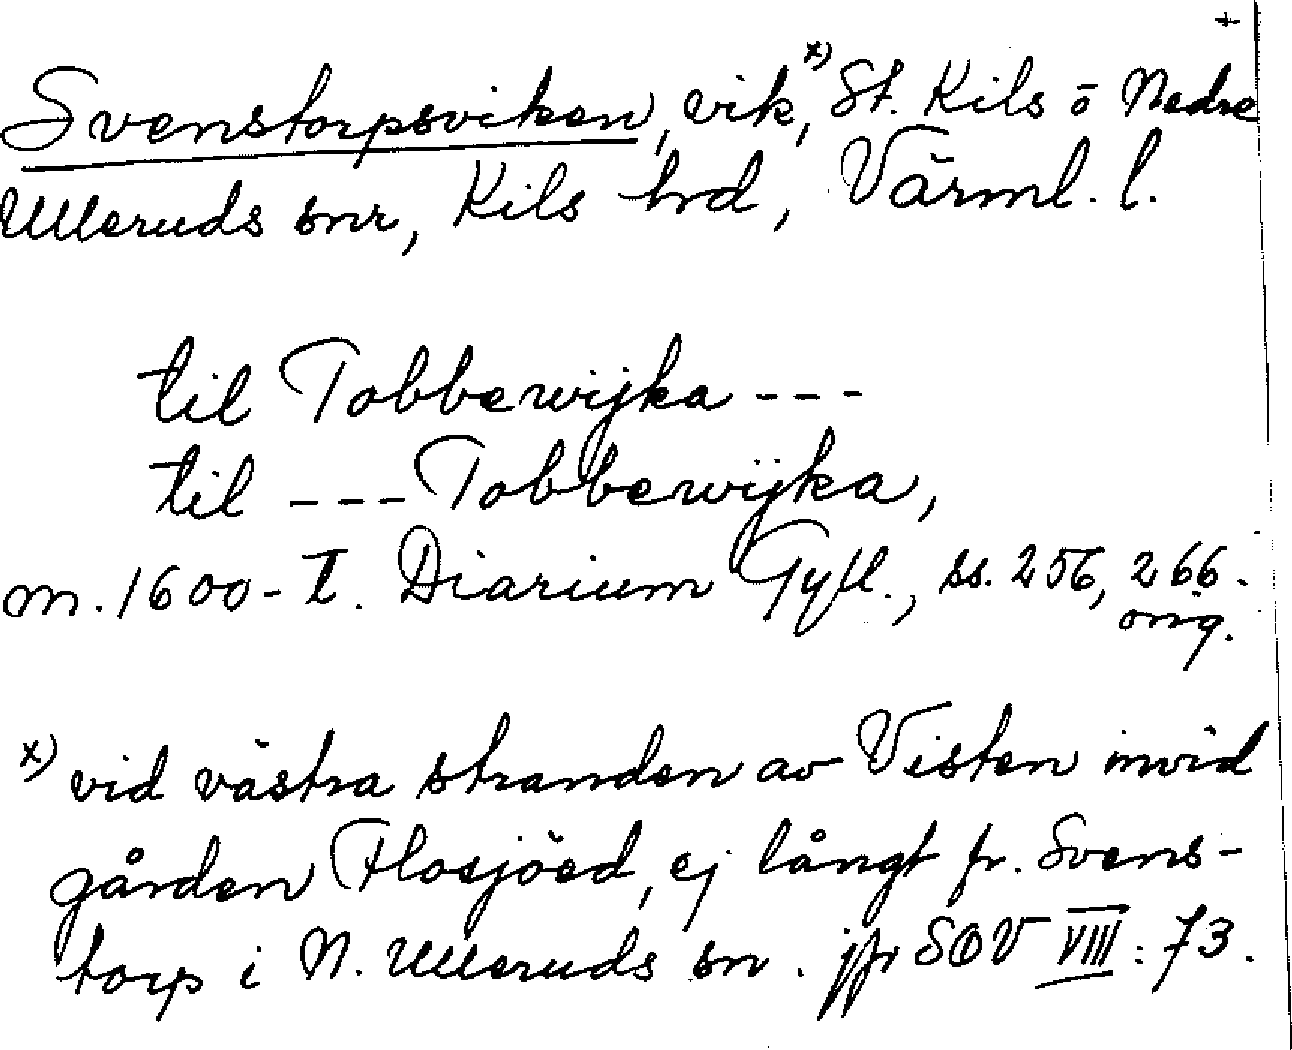 +
Svenstorpsviken, vik, x) St. Kils o Nedre
Ulleruds snr, Kils hrd, Värml. l.
til Tobbewijka ---
til --- Tobbewijka,
m. 1600-t. Diarium Gyll., ss. 256, 266.
orig.
x) vid västra stranden av Visten invid
gården Flosjöed, ej långt fr. Svens-
torp i N. Ulleruds sn. jfr SOV VIII: 73.